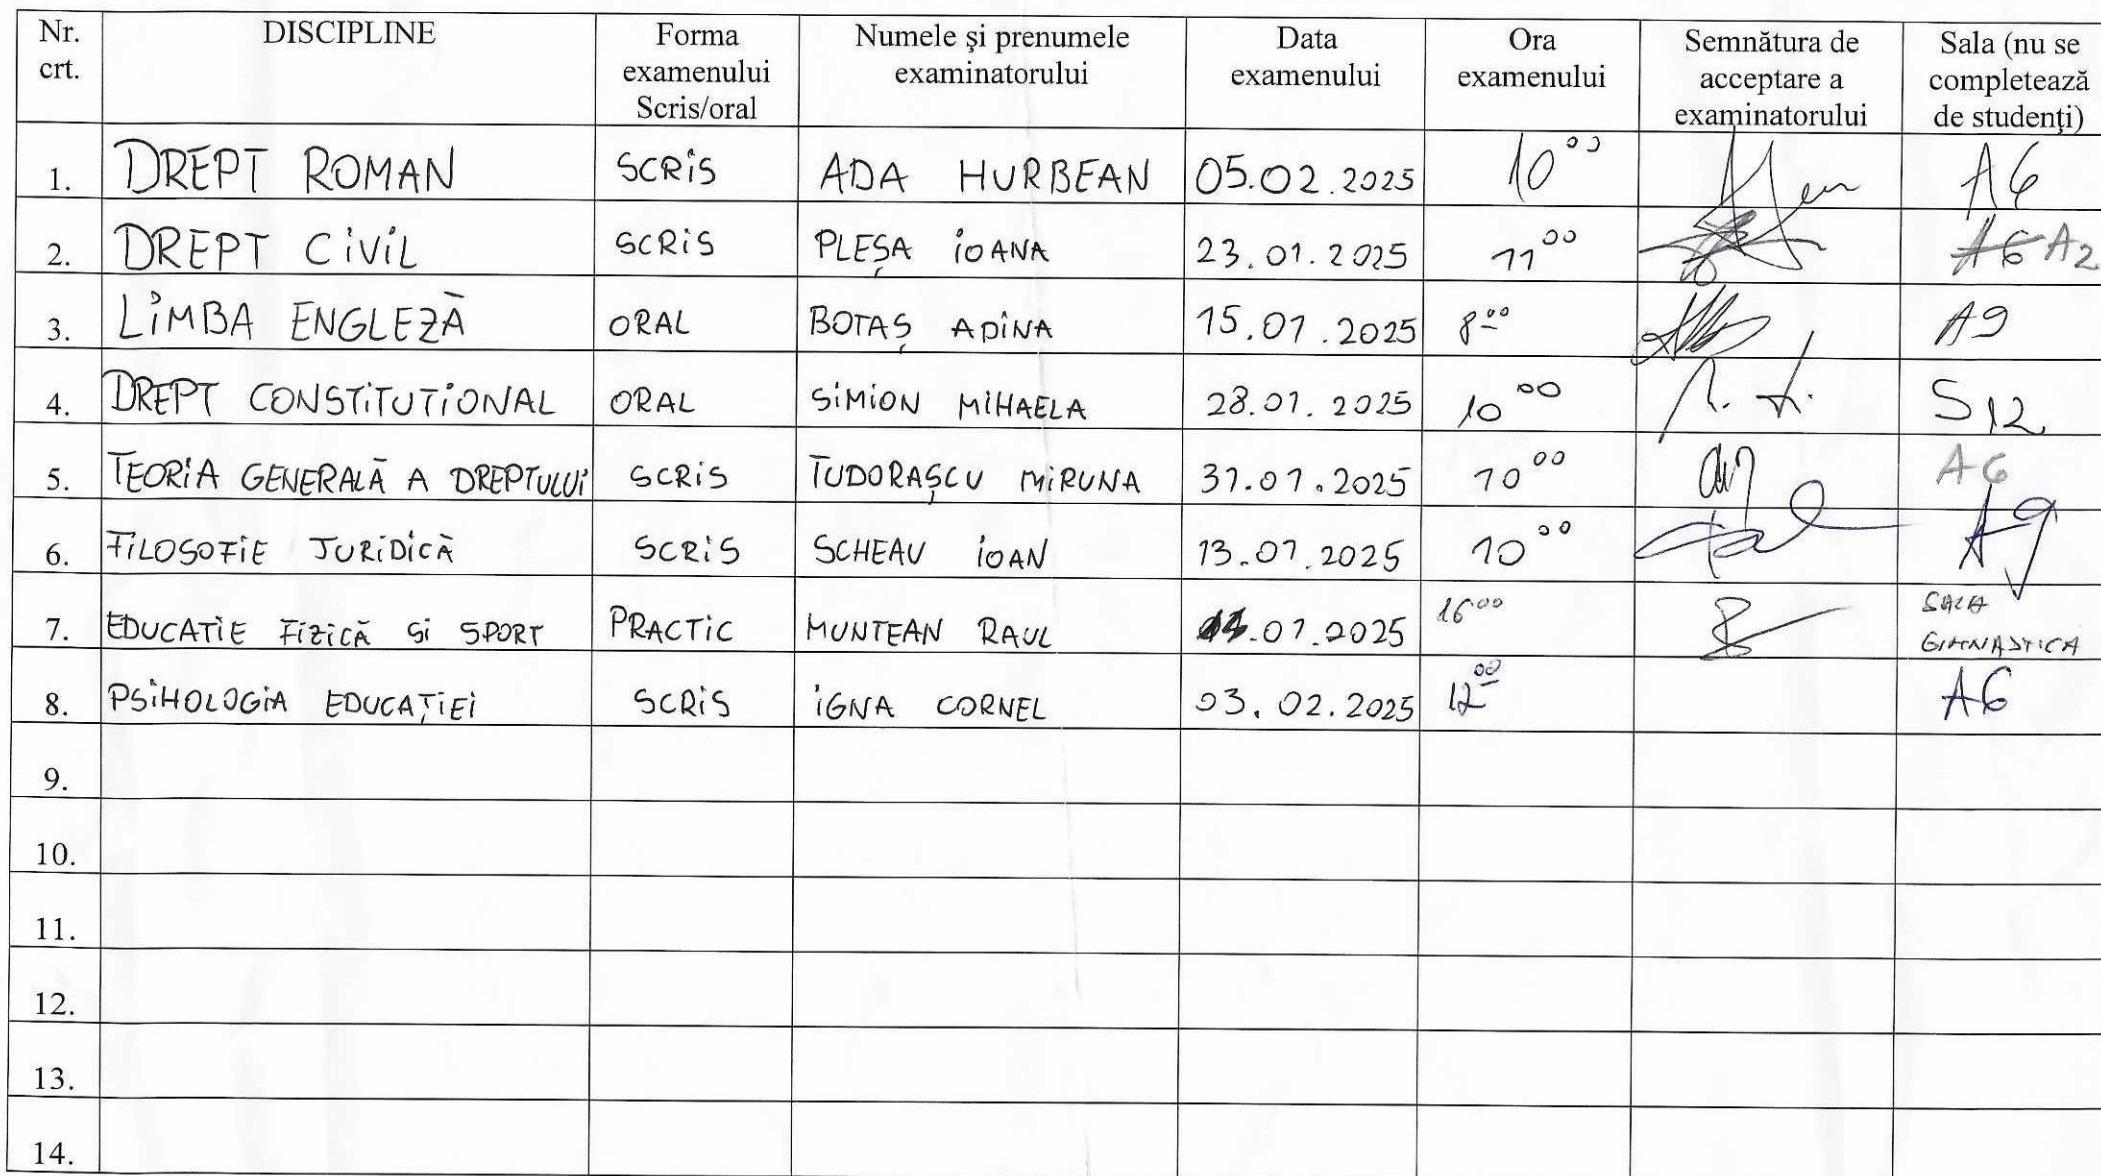 Nr. crt. DISCIPLINE Forma examenului Scris/oral Numele şi prenumele examinatorului Data examenului Ora examenului Semnătura de acceptare a examinatorului Sala (nu se completează de studenţi)
1. DREPT ROMAN SCRIS ADA HURBEAN 05.02.2025 10 00 A6
2. DREPT CIVIL SCRIS PLEȘA IOANA 23.01.2025 11 00 A6 A2
3. LIMBA ENGLEZĂ ORAL BOTAȘ ADINA 15.01.2025 8 00 A9
4. DREPT CONSTITUTIONAL ORAL SIMION MIHAELA 28.01.2025 10 00 S12
5. TEORIA GENERALĂ A DREPTULUI SCRIS TUDORAȘCU MIRUNA 31.01.2025 10 00 A6
6. FILOSOFIE JURIDICĂ SCRIS SCHEAU IOAN 13.01.2025 10 00 A9
7. EDUCATIE FIZICĂ SI SPORT PRACTIC MUNTEAN RAUL .01.2025 16 00 SALA GIMNASTICA
8. PSIHOLOGIA EDUCAȚIEI SCRIS IGNA CORNEL 03.02.2025 12 00 A6
9.
10.
11.
12.
13.
14.